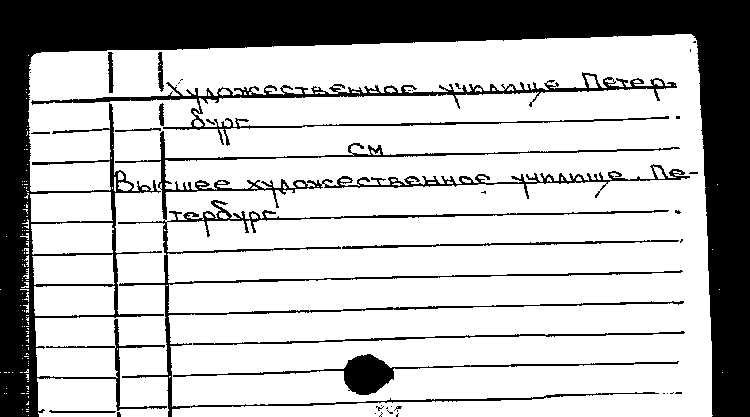 Художественное училище Петер-
бург
см
Высшее художественное училище. Пе-
тербург